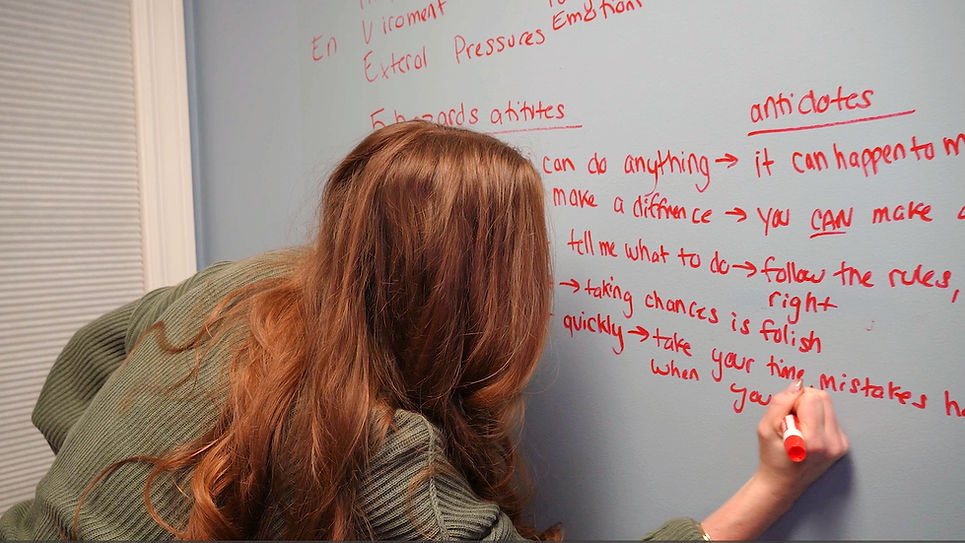 Viroment
En
Emotion
Exteral Pressures
5 hazards atitutes
antidotes
can do anything → it can happen to m
make a diffrence → you CAN make
tell me what to do → follow the rules,
right
→ taking chances is folish
quickly → take your time, mistakes ha
when you